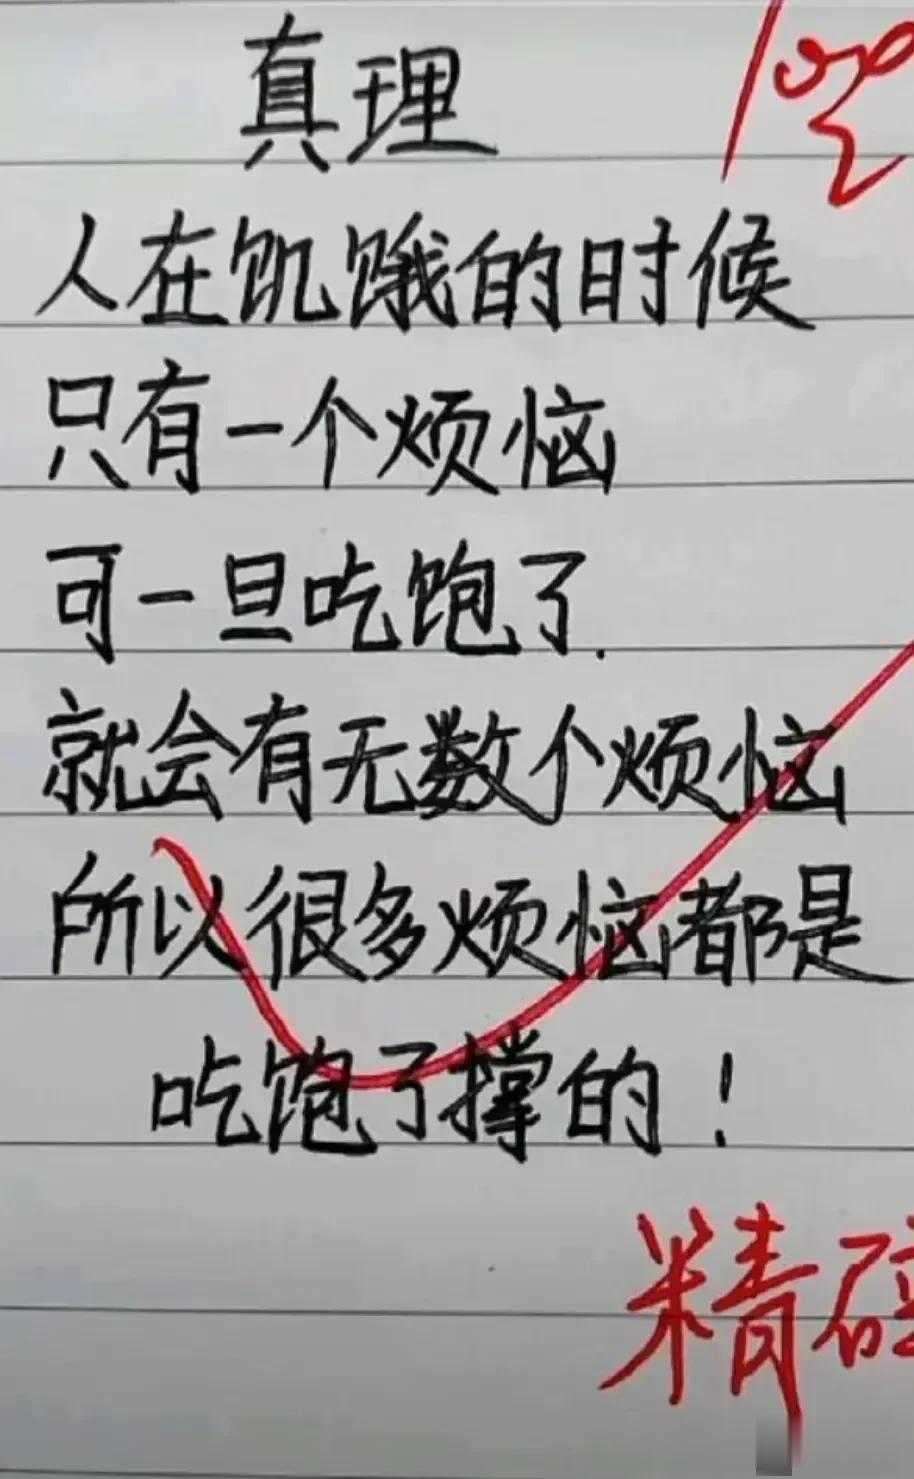 真理
100
人在饥饿的时候
只有一个烦恼
可一旦吃饱了.
就会有无数个烦恼
所以很多烦恼都是
吃饱了撑的！
精